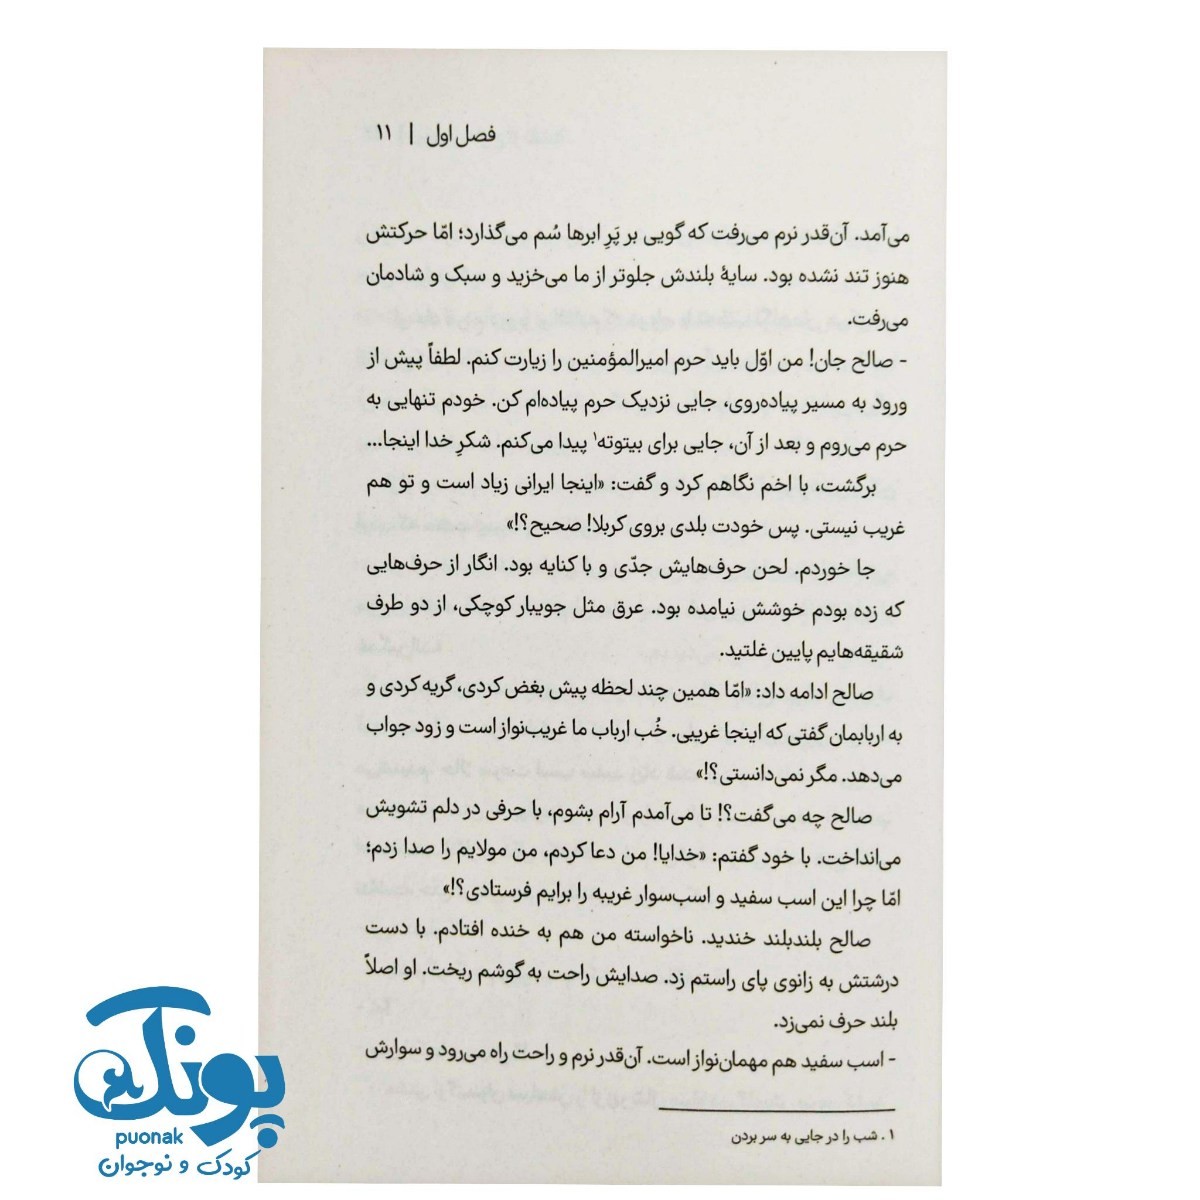 فصل اول | ۱۱
می‌آمد. آن‌قدر نرم می‌رفت که گویی بر پَرِ ابرها سُم می‌گذارد؛ امّا حرکتش
هنوز تند نشده بود. سایهٔ بلندش جلوتر از ما می‌خزید و سبک و شادمان
می‌رفت.
- صالح جان! من اوّل باید حرم امیرالمؤمنین را زیارت کنم. لطفاً پیش از
ورود به مسیر پیاده‌روی، جایی نزدیک حرم پیاده‌ام کن. خودم تنهایی به
حرم می‌روم و بعد از آن، جایی برای بیتوته۱ پیدا می‌کنم. شکرِ خدا اینجا...
برگشت، با اخم نگاهم کرد و گفت: «اینجا ایرانی زیاد است و تو هم
غریب نیستی. پس خودت بلدی بروی کربلا! صحیح؟!»
جا خوردم. لحن حرف‌هایش جدّی و با کنایه بود. انگار از حرف‌هایی
که زده بودم خوشش نیامده بود. عرق مثل جویبار کوچکی، از دو طرف
شقیقه‌هایم پایین غلتید.
صالح ادامه داد: «امّا همین چند لحظه پیش بغض کردی، گریه کردی و
به اربابمان گفتی که اینجا غریبی. خُب ارباب ما غریب‌نواز است و زود جواب
می‌دهد. مگر نمی‌دانستی؟!»
صالح چه می‌گفت؟! تا می‌آمدم آرام بشوم، با حرفی در دلم تشویش
می‌انداخت. با خود گفتم: «خدایا! من دعا کردم، من مولایم را صدا زدم؛
امّا چرا این اسب سفید و اسب‌سوار غریبه را برایم فرستادی؟!»
صالح بلندبلند خندید. ناخواسته من هم به خنده افتادم. با دست
درشتش به زانوی پای راستم زد. صدایش راحت به گوشم ریخت. او اصلاً
بلند حرف نمی‌زد.
- اسب سفید هم مهمان‌نواز است. آن‌قدر نرم و راحت راه می‌رود و سوارش
۱. شب را در جایی به سر بردن
پونک
puonak
کودک و نوجوان